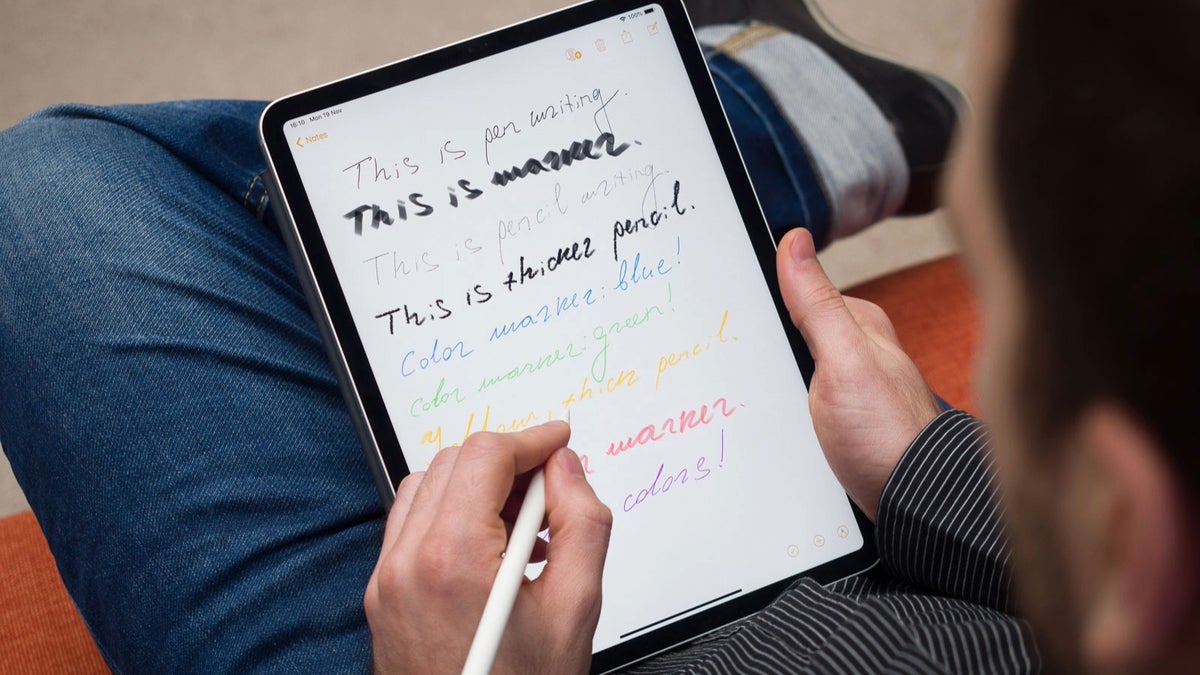 16:10 Mon 19 Nov
100%
Notes
This is pen writing.
This is marker.
This is pencil writing.
This is thicker pencil.
Color marker: blue!
color marker: green!
yellow, thick pencil.
marker.
colors!